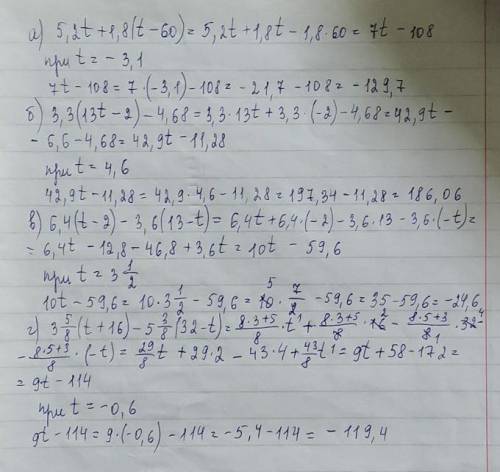 а) 5,2t+1,8(t-60)=5,2t+1,8t-1,8·60=7t-108
при t=-3,1
7t-108=7·(-3,1)-108=-21,7-108=-129,7
б) 3,3(13t-2)-4,68=3,3·13t+3,3·(-2)-4,68=42,9t-
-6,6-4,68=42,9t-11,28
при t=4,6
42,9t-11,28=42,9·4,6-11,28=197,34-11,28=186,06
в) 6,4(t-2)-3,6(13-t)=6,4t+6,4·(-2)-3,6·13-3,6·(-t)=
=6,4t-12,8-46,8+3,6t=10t-59,6
при t=3 1/2
10t-59,6=10·3 1/2-59,6=10 5·7/2-59,6=35-59,6=-24,6
г) 3 5/8(t+16)-5 3/8(32-t)=8·3+5/8·t+8·3+5/8 1·16 2-8·5+3/8 1·32 4
-8·5+3/8·(-t)=29/8t+29·2-43·4+43/8t=9t+58-172=
=9t-114
при t=-0,6
9t-114=9·(-0,6)-114=-5,4-114=-119,4